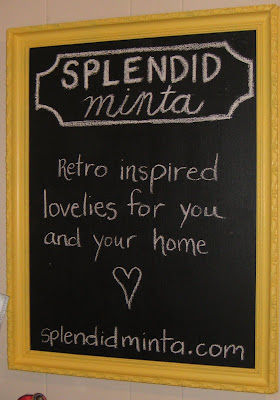 SPLENDID
minta
Retro inspired
lovelies for you
and your home
splendidminta.com